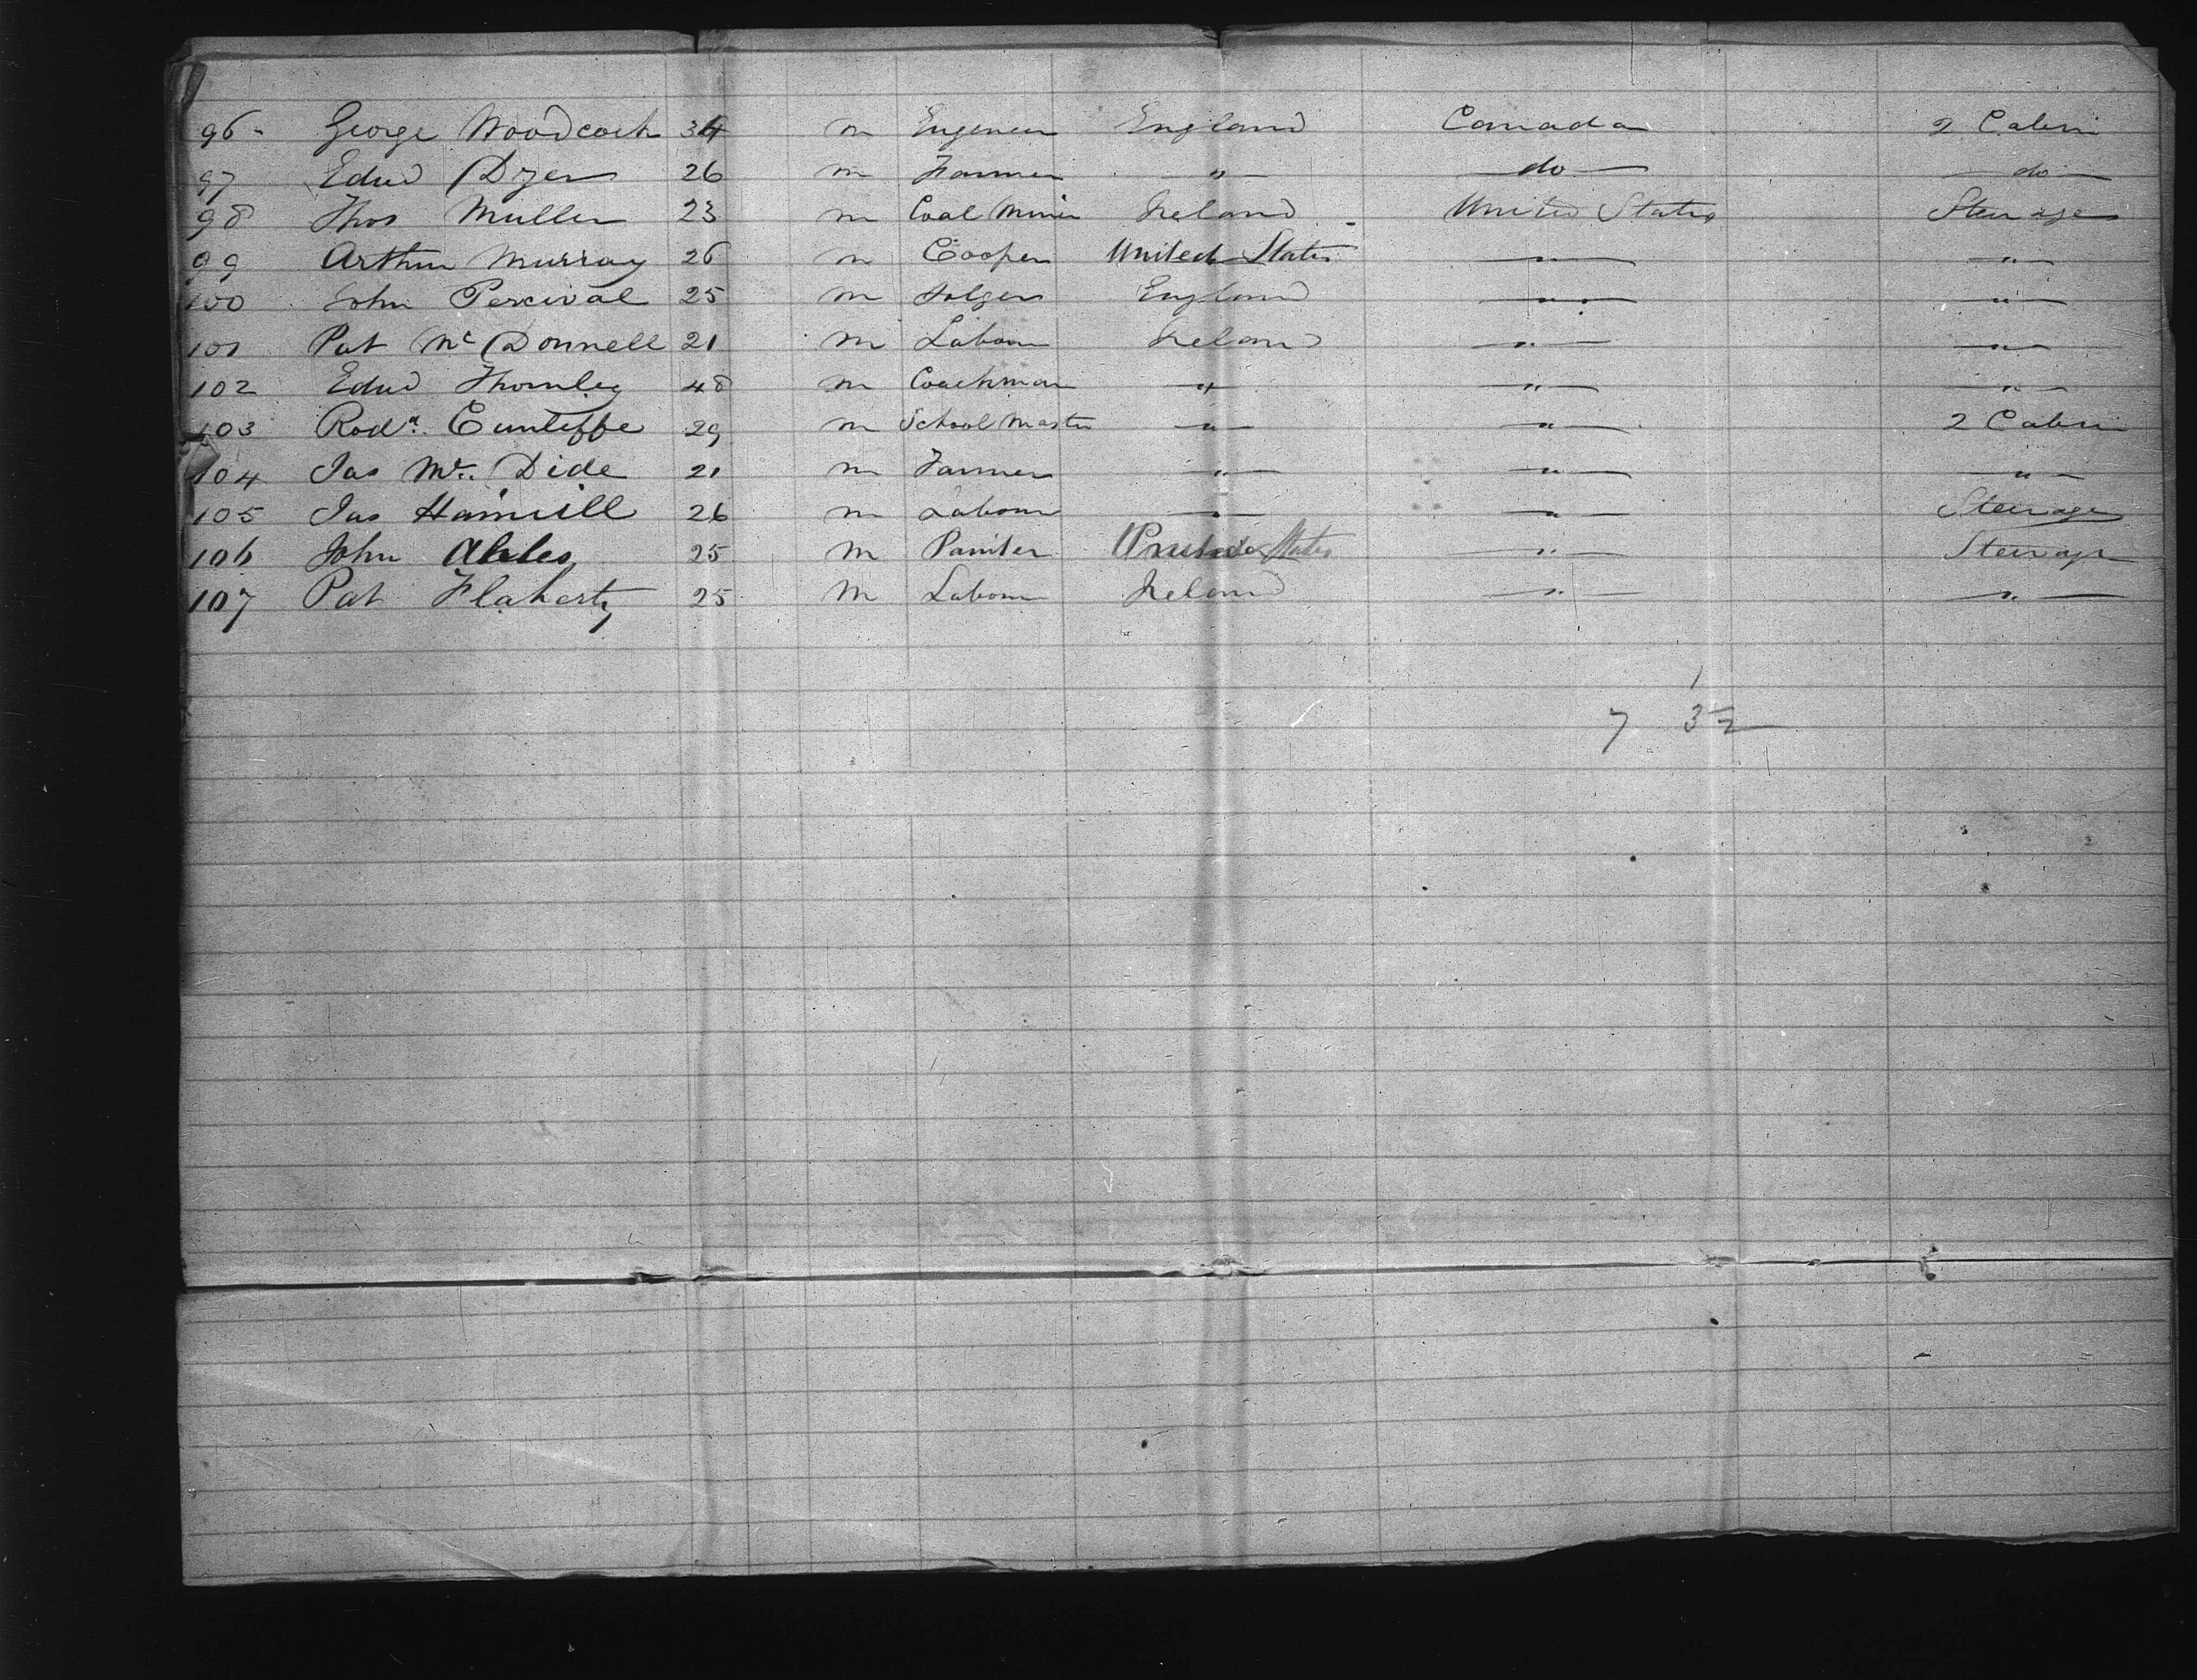 96 - George Woodcock 34 m Engeneer England Canada 2 Cabin
97 Edwd Dyer 26 m Farmer " do do
98 Thos Mullen 23 m Coal Miner Ireland United States Steerage
99 Arthur Murray 26 m Cooper United States " "
100 John Percival 25 m England " "
101 Pat Mc Donnell 21 m Labour Ireland " "
102 Edwd Thornley 48 m Coachman " " "
103 Rodk. Cunliffe 29 m School Master " " 2 Cabin
104 Jas Mc. Dide 21 m Farmer " " "
105 Jas Hamill 26 m Labour " " Steerage
106 John Ables 25 m Painter States " Steerage
107 Pat Flaherty 25 m Labour Ireland " "
1
7 3